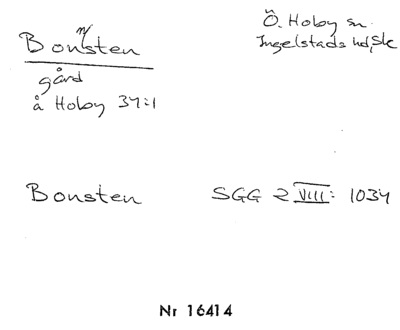 Bonsten
Ö. Hoby sn.
Ingelstads hd, Sk
gård
å Hoby 34:1
Bonsten SGG 2 VIII: 1034
Nr 16414